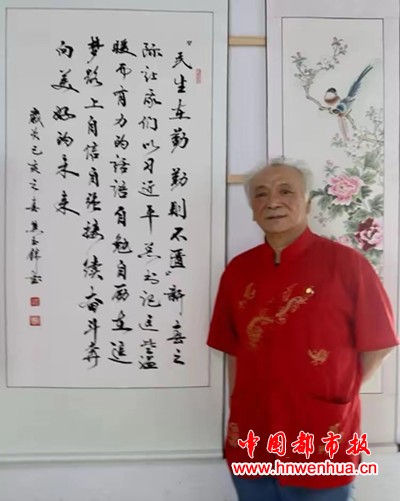 “民生在勤勤则不匮”新春之
际让我们以习近平总书记这些温
暖而有力的话语自勉自在追
梦路上自信自强接续奋斗奔
向美好的未来
岁次己亥之春
中国都市报
www.hnwenhua.cn